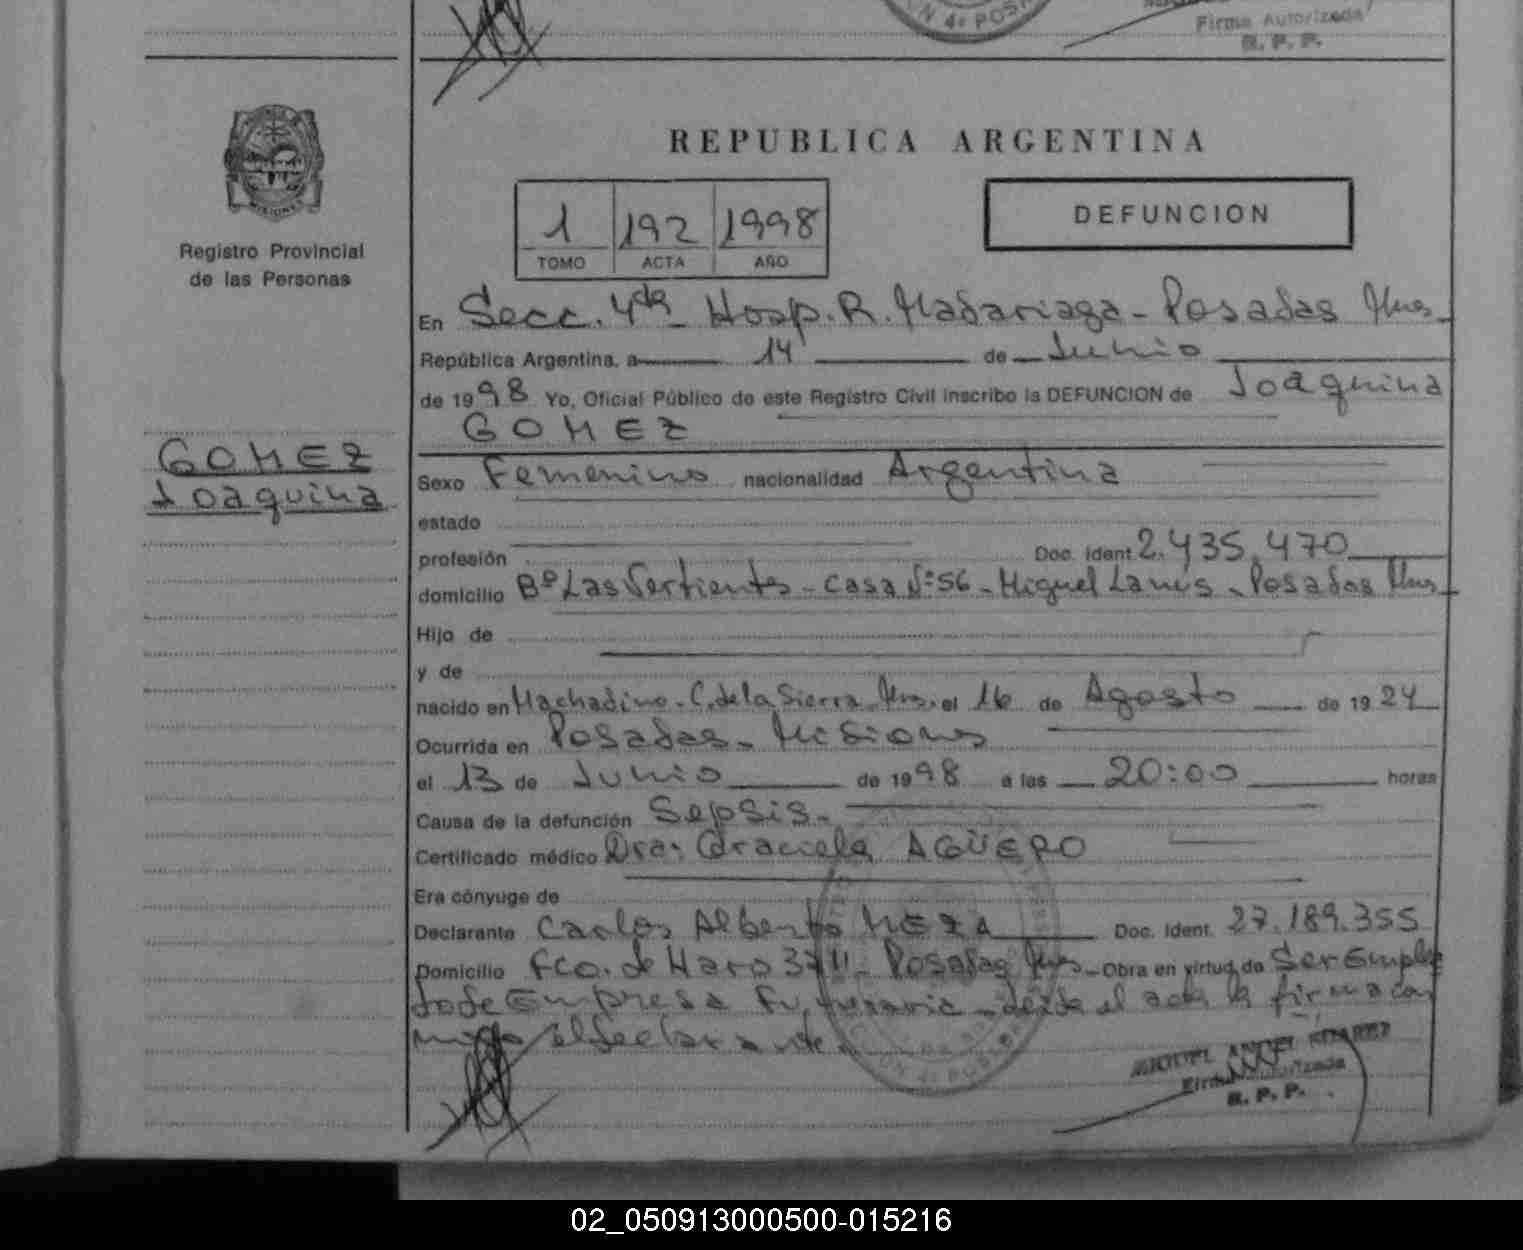 N 4º POSA
Firma Autorizada
R. P. P.
MISIONES
Registro Provincial
de las Personas
REPUBLICA ARGENTINA
1 192 1998
TOMO ACTA AÑO
DEFUNCION
En Secc. 4ta Hosp. R. Madariaga - Posadas Mnes
República Argentina, a 14 de Junio
de 1998 Yo, Oficial Público de este Registro Civil inscribo la DEFUNCION de Joaquina
GOMEZ
GOMEZ
Joaquina
Sexo Femenino nacionalidad Argentina
estado
profesión Doc. Ident. 2.435.470
domicilio Bº Las Vertientes - Casa Nº 56 - Miguel Lanus - Posadas Mnes
Hijo de
y de
nacido en Machadino - C. de la Sierra Mns. el 16 de Agosto de 1924
Ocurrida en Posadas - Misiones
el 13 de Junio de 1998 a las 20:00 horas
Causa de la defunción Sepsis.
Certificado médico Dra. Graciela AGÜERO
Era cónyuge de
Declarante Carlos Alberto MEZA Doc. Ident. 27.189.355
Domicilio Fco. de Haro 3711 - Posadas Mns - Obra en virtud de Ser Emplea
do de Empresa Funeraria - leída el acta la firma con
migo el declarante
Firma Autorizada
R. P. P.
02_050913000500-015216